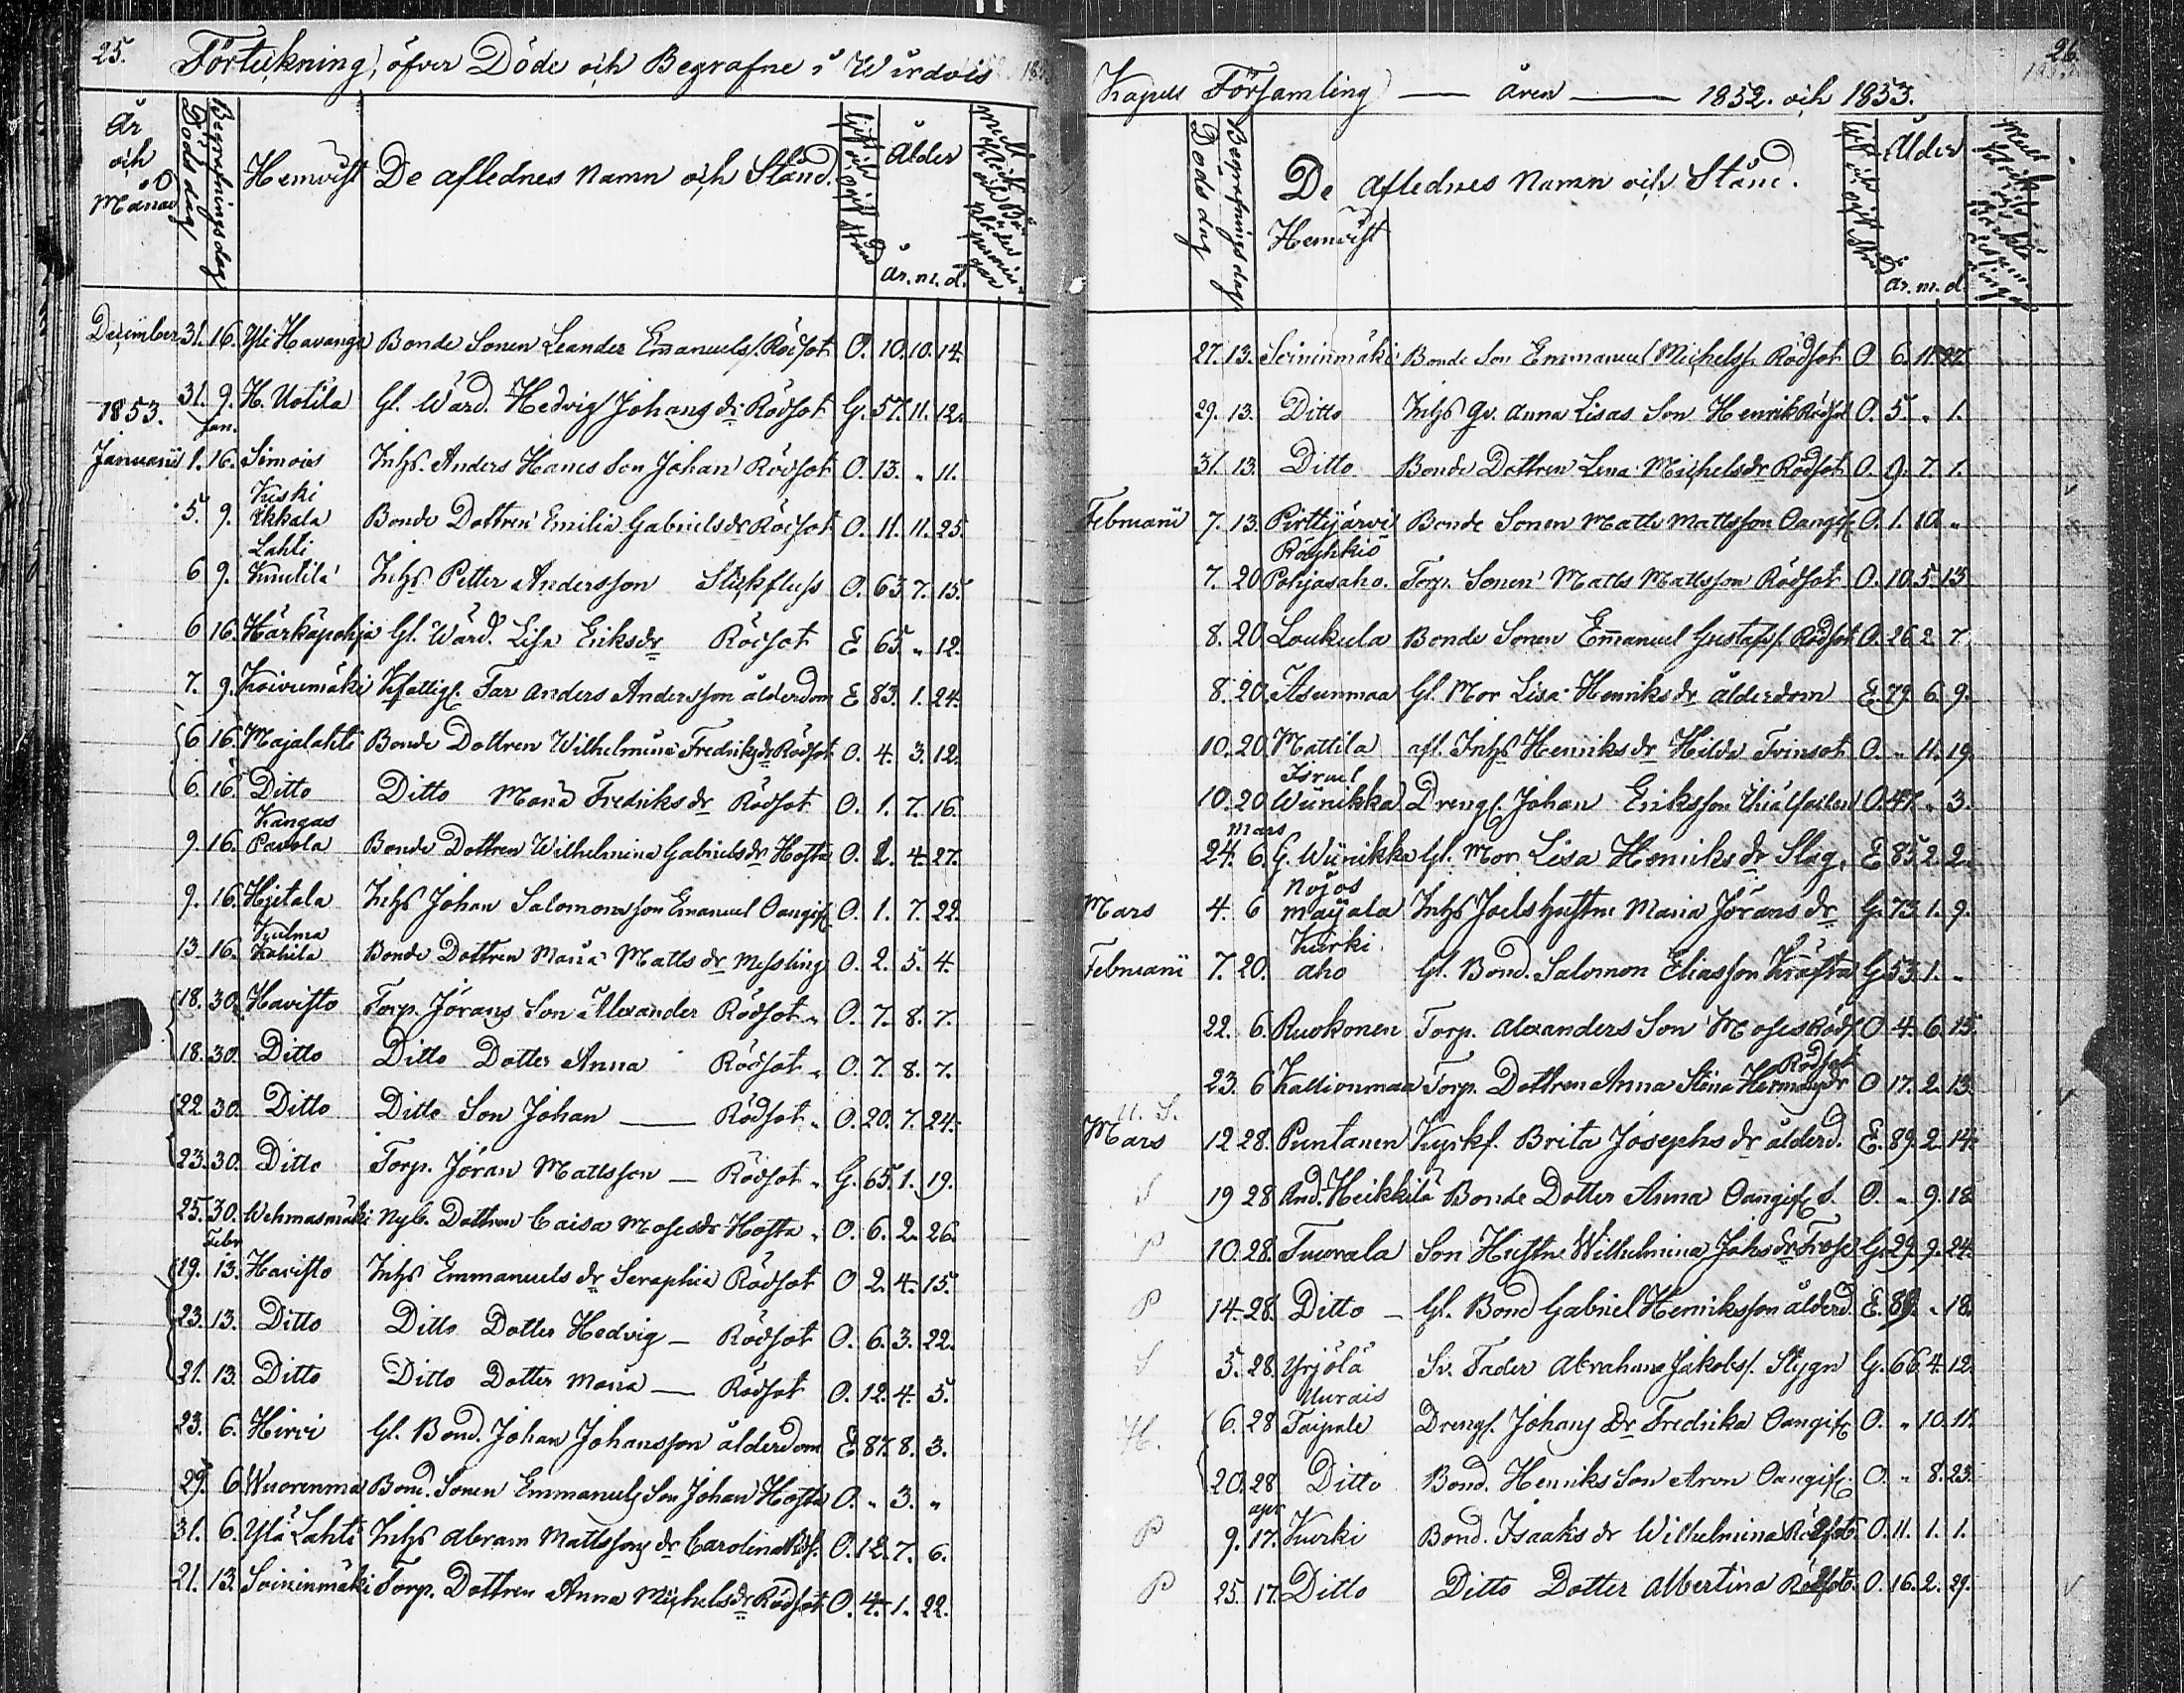 25. Förteckning öfver Döde och Begrafne i Wirdois
År och Månad Döds dag Begrafnings dag Hemvist De aflednes Namn och Stånd. Ålder
År. m. d.
December 31. 16. Yli Havanga Bonde Sonen Leander Emanuelss. Rödsot O. 10. 10. 14.
31. 9. H. Uotila Gl. Wärd. Hedvig Johans dr Rödsot G. 57. 11. 12.
1853. Jan.
Januarii 1. 16. Simois Inhs. Anders Hanes Son Johan Rödsot O. 13. " 11.
Keski
5. 9. Ikkala Bonde Dottren Emilia Gabriels dr Rödsot O. 11. 11. 25.
Lahti
6 9. Knutila Inhs Petter Andersson Stickfluss O. 63. 7. 15.
6 16. Härkäpohja Gl. Wärd. Lisa Eriks dr Rödsot E 65. " 12.
7. 9. Koivumäki Kfattigs. Far Anders Andersson ålderdom E 83. 1. 24.
6 16. Majalahti Bonde Dottren Wilhelmina Fredriks dr Rödsot O. 4. 3. 12.
6. 16. Ditto Ditto Maria Fredriks dr Rödsot O. 1. 7. 16.
Kangas
9. 16. Pavola Bonde Dottren Wilhelmina Gabriels dr Hosta O. 2. 4. 27.
9. 16. Hjetala Inhs Johan Salomonsson Emanuel Oangifv O. 1. 7. 22.
Kulma
13. 16. Kohila Bonde Dottren Maria Matts dr Messling O. 2. 5. 4.
18. 30. Havisto Torp. Jörans Son Alexander Rödsot " O. 7. 8. 7.
18. 30. Ditto Ditto Dotter Anna Rödsot " O. 7. 8. 7.
22 30. Ditto Ditto Son Johan — Rödsot " O. 20. 7. 24.
23. 30. Ditto Torp. Jöran Mattsson — Rödsot " G. 65. 1. 19.
25. 30. Wehmasmäki Nyb. Dottren Caisa Moses dr Hosta " O. 6. 2. 26.
Febr
19. 13. Havisto Inhs Emmanuels dr Seraphia Rödsot O 2. 4. 15.
23. 13. Ditto Ditto Dotter Hedvig — Rödsot O. 6. 3. 22.
21. 13. Ditto Ditto Dotter Maria — Rödsot O. 12. 4. 5.
23. 6. Hirvi Gl. Bond. Johan Johansson ålderdom E 87. 8. 3.
29. 6 Wuorenma Bond. Sonen Emmanuels Son Johan Hosta O. " 3. "
31. 6. Ylä Lahti Inhs Abram Mattssons dr Carolina Röds. O. 12. 7. 6.
21. 13. Soininmäki Torp. Dottren Anna Michels dr Rödsot O. 4. 1. 22.
26.
Kapell Församling — åren — 1852. och 1853.
Döds dag Begrafnings dag De Aflednes Namn och Stånd. Hemvist Ålder
År. m. d.
27. 13. Soininmäki Bonde Son Emmanuel Michelss. Rödsot O 6. 11. 27.
29. 13. Ditto Inhs Qv. Anna Lisas Son Henrik Rödsot O. 5. " 1.
31. 13. Ditto Bonde Dottren Lena Michels dr Rödsot O. 9. 7. 1.
Februarii 7. 13. Pirttijärvi Bonde Sonen Matts Mattsson Oangifv O. 1. 10. "
Röyhkiö
7. 20 Pohjasaho. Torp. Sonen Matts Mattsson Rödsot O. 10. 5. 13
8. 20 Loukula Bonde Sonen Emanuel Gustafss. Rödsot O. 26 2. 7.
8. 20. Asunmaa Gl. Mor Lisa Henriks dr ålderdom E. 79. 6. 9.
10. 20. Mattila afl. Inhs Henriks dr Hilda Tvinsot O. " 11. 19.
Israel
10. 20 Wünikka Drengs. Johan Eriksson O. 47. " 3.
Mars
24. 6. G. Wünikka Gl. Mor Lisa Henriks dr Slag. E 85. 2. 2.
Nojos
Mars 4. 6 Maijala Inhs Joels hustru Maria Jörans dr G. 73. 1. 9.
Kurki
Februarii 7. 20. aho Gl. Bond. Salomon Eliasson Kräfta G 53. 1. "
22. 6. Ruokonen Torp. Alexanders Son Moses Röds. O. 4. 6. 15.
Rödsot
23. 6 Kallionmaa Torp. Dottren Anna Stina Hermans dr O 17. 2. 13.
U. S.
Mars 12 28. Puntanen Kyrkf. Brita Josephs dr ålderd. E. 89. 2. 14.
S 19 28 And. Heikkilä Bonde Dotter Anna Oangifv s. O. " 9. 18
P 10. 28. Tuorala Son Hustru Wilhelmina Johs dr G. 29. 9. 24.
P 14. 28. Ditto — Gl. Bond Gabriel Henriksson ålderd. E. 89. " 18.
S 5. 28 Yrjölä Sv. Fader Abrahams Jakobss. Stygn G. 66. 4. 12.
Uurais
H. 6. 28 Taipale Drengs. Johans dr Fredrika Oangifv O. " 10. 11.
20. 28 Ditto Bond. Henriks Son Aron Oangifv. O. " 8. 23.
apr
P 9. 17. Kurki Bond. Isaaks dr Wilhelmina Rödsot. O. 11. 1. 1.
P 25. 17. Ditto Ditto Dotter Albertina Rödsot. O. 16. 2. 29.